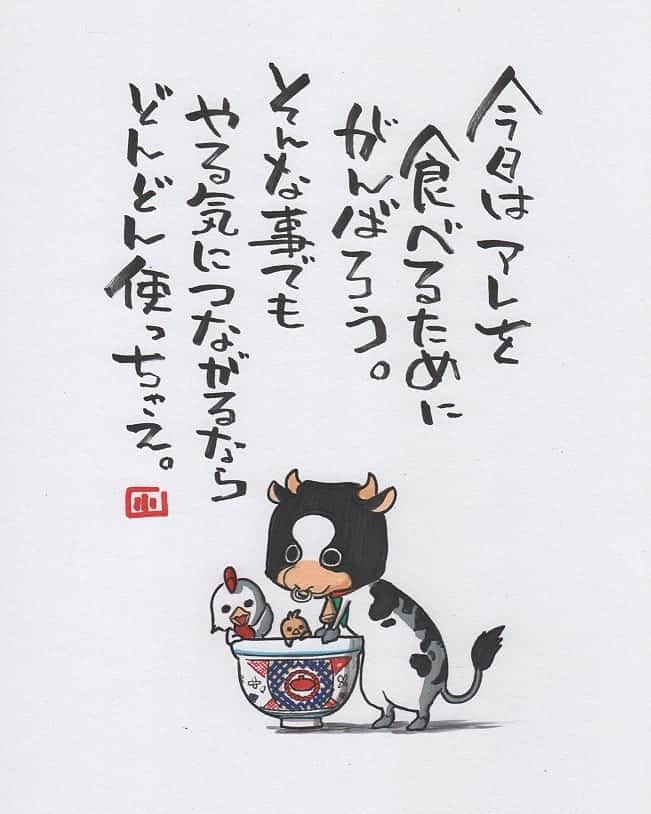 今日はアレを
食べるために
がんばろう。
そんな事でも
やる気につながるなら
どんどん使っちゃえ。